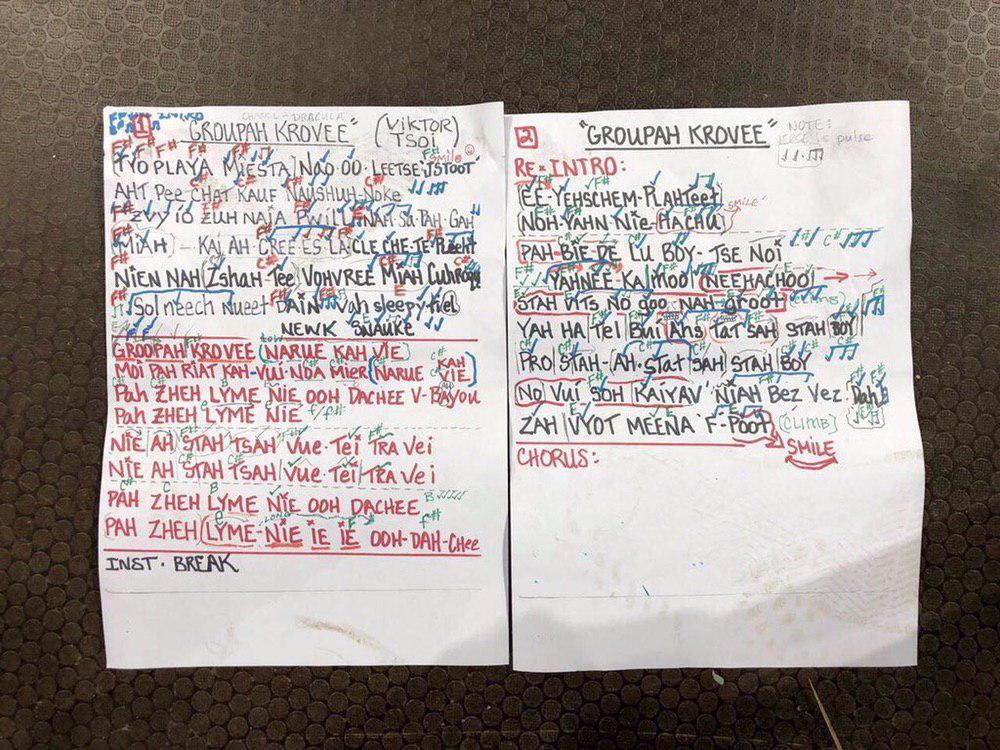 1 "GROUPAH KROVEE" (VIKTOR
TSOI)
[TYO PLAYA MIESTA] NAO-OO-LEETSE JSTOOT
AHT Pee CHAT KAUF NAUSHUH Noke
ZVYIO ZUH NAIA PWILL NAH Su-PAH-GAH
(MIAH) - KAI AH-CREE-ES LA CLE CHE-TE PLEEHT
NIEN NAH Zshah-Tee VOHVREE MIAH
Sol neech Nueet DAIN vah sleepy fiel
NEWK SNAUKE
GROOPAH KROVEE (NARUE KAH VIE)
MOI PAH RIAT KAH-VUI-NOA MIER (NARUE KAH VIE)
PAH ZHEH LYME NIE OOH DACHEE V-BAYOU
PAH ZHEH LYME NIE f/f#
NIE AH STAH TSAH VUE-TEI TRA VEI
NIE AH STAH TSAH VUE-TEI TRA VEI
PAH ZHEH LYME NIE OOH DACHEE B
PAH ZHEH (LYME-NIE IE IE OOH-DAH-CHEE
INST. BREAK
2 "GROUPAH KROVEE" NOTE:
VERSE is pulse
RE-INTRO:
(EE-YEHSCHEM-PLAHTEET)
(NOH-YAHN NIE-HACHU) SMILE
PAH-BIE DE LU BOY-TSE NOI
YAHNEE-KAHMOO (NEEHACHOO)
STAH VITS NO goo-NAH-groot (CLIMB)
YAH HA TEI BUI AHS TAT SAH STAH BOY
PRO STAH-(AH-STAT SAH STAH BOY
NO VUI SOH KAIYAV' NIAH BEZ VEZ-DAH
ZAH VYOT MEENA F-POOT) (CLIMB)
SMILE
CHORUS: